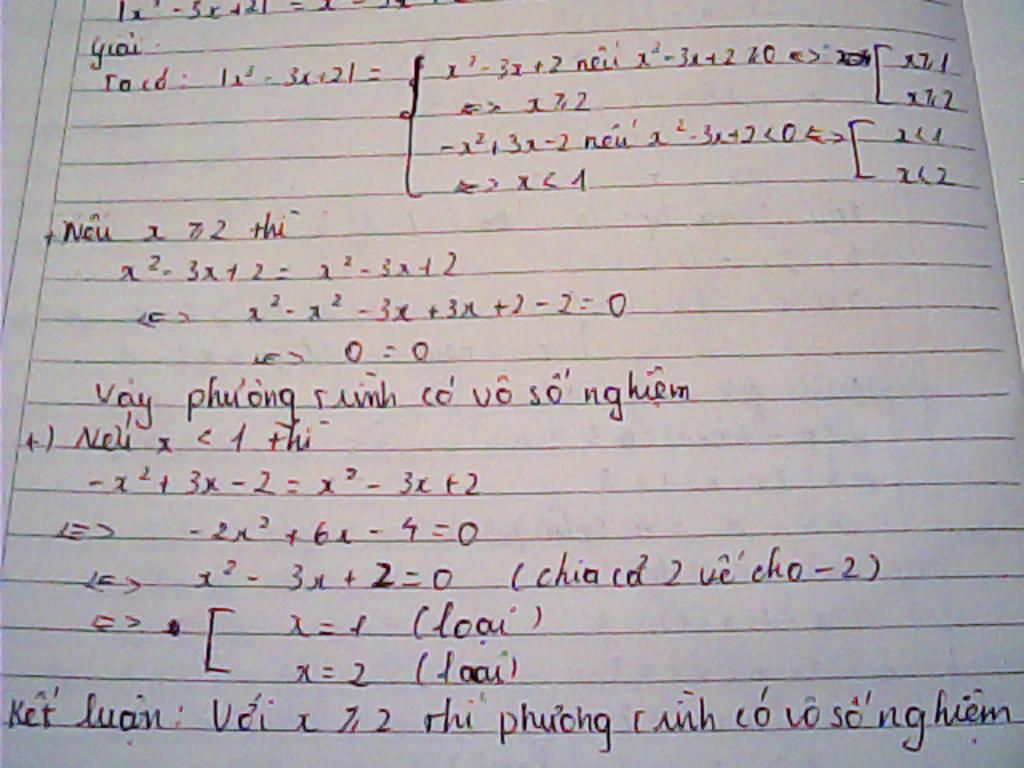 |x² - 3x + 2| = x² - 3x
giải
Ta có: |x² - 3x + 2| = { x² - 3x + 2 nếu x² - 3x + 2 ≥ 0 <=> [ x ≥ 1
<=> x ≥ 2 x ≥ 2
-x² + 3x - 2 nếu x² - 3x + 2 < 0 <=> [ x < 1
<=> x < 1 x < 2
+ Nếu x ≥ 2 thì
x² - 3x + 2 = x² - 3x + 2
<=> x² - x² - 3x + 3x + 2 - 2 = 0
<=> 0 = 0
Vậy phương trình có vô số nghiệm
+) Nếu x < 1 thì
-x² + 3x - 2 = x² - 3x + 2
<=> -2x² + 6x - 4 = 0
<=> x² - 3x + 2 = 0 (chia cả 2 vế cho -2)
<=> [ x = 1 (loại)
x = 2 (loại)
Kết luận: Với x ≥ 2 thì phương trình có vô số nghiệm